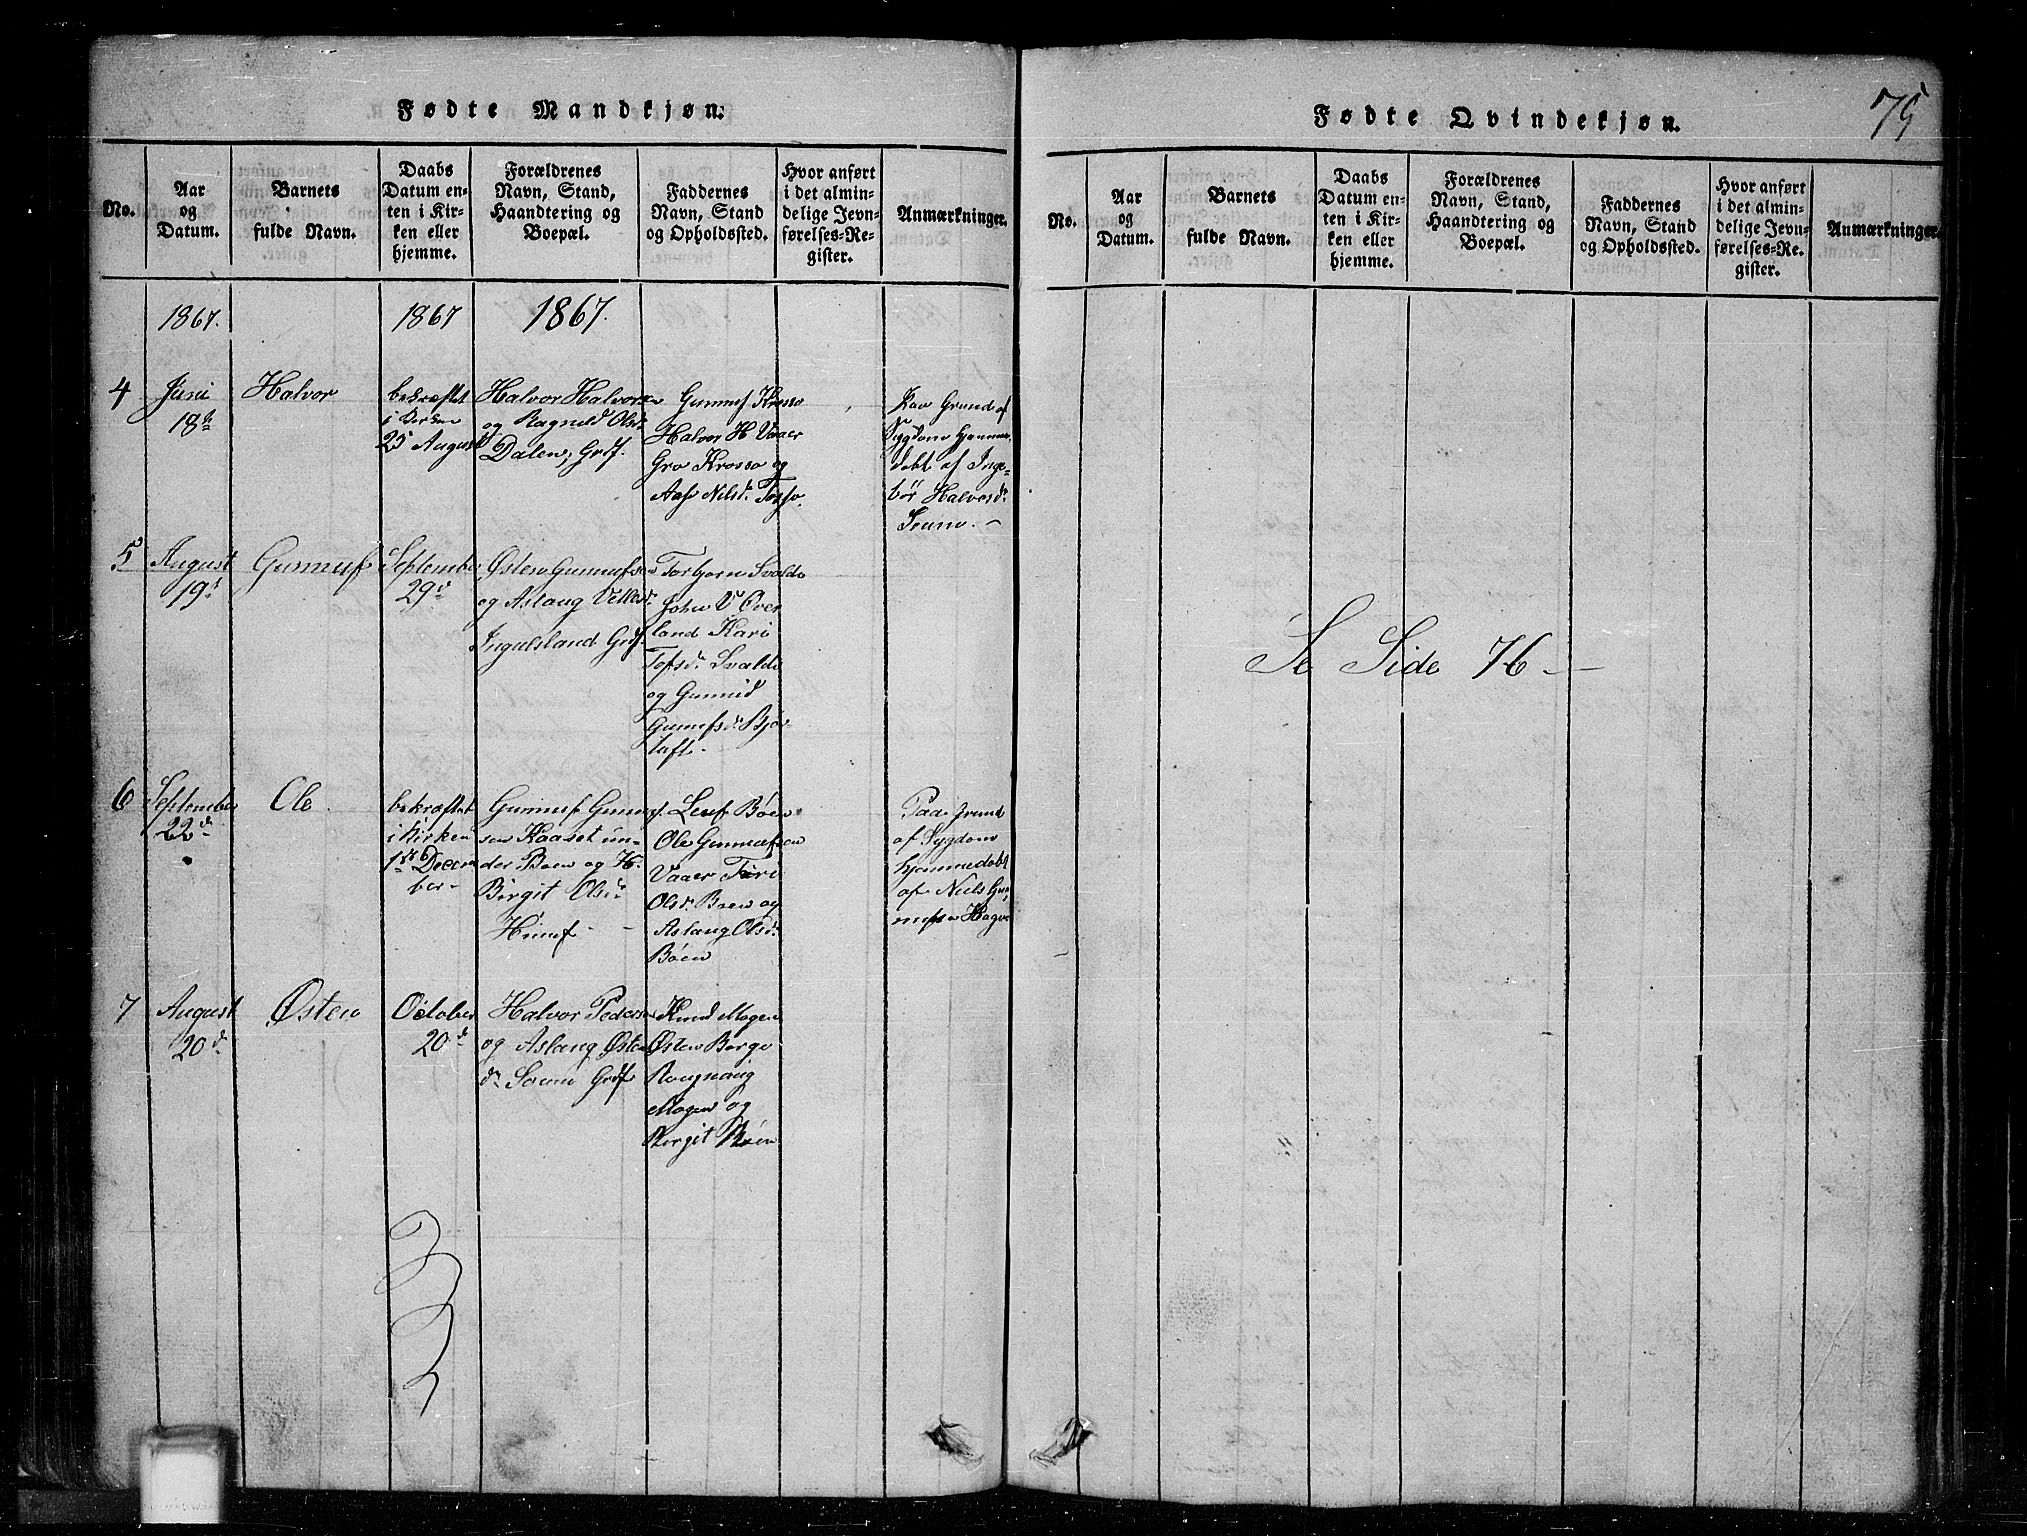 Fødte Mandkjøn.
No.
Aar
og
Datum.
Barnets
fulde Navn.
Daabs
Datum en-
ten i Kir-
ken eller
hjemme.
Forældrenes
Navn, Stand,
Haandtering og
Boepæl.
Faddernes
Navn, Stand
og Opholdssted.
Hvor anført
i det almin-
delige Jevn-
førelses-Re-
gister.
Anmærkninger.
1867.
1867
1867.
4
Juni
18de
Halvor
bekræftet
i Kirken
25 August
Halvor Halvorsen
og Ragnild Olsd.
Dalen, Grdf.
Gunnuf Krosso
Halvor H Vaaer
Gro Krosso og
Aase Nilsd. Tosso.
Paa Grund af
Sygdom hjemme-
døbt af Inge-
bør Halvorsdr
Soum. -
5
August
19d
Gunnuf
September
29d
Østen Gunnufsen
og Aslaug Vetlesdr
Ingulsland Grdf.
Torbjørn Svalde
John V Over
land Kari
Tofsdr Svalde
og Gunnild
Gunnufsdr Bjør
tuft -
6
September
22d
Ole
bekræftet
i Kirken
1ste Decem
ber -
Gunnuf Gunnuf
sen Kaaset un-
der Boen og H.
Birgit Olsdr
Huusf -
Leuf Bøen
Ole Gunnufsen
Vaaer Turi
Olsdr Boen og
Aslaug Olsdr
Bøen
Paa Grund
af Sygdom
hjemmedøbt
af Niels Gun
nufsen Hagen
7
August
20d
Østen
October
20d
Halvor Pedersen
og Aslaug Østens
dr Soum Grdf
Knud Mogen
Østen Berge
Rougnaug
Mogen og
Birgit Bøen
Fødte Qvindekjøn.
75
No.
Aar
og
Datum.
Barnets
fulde Navn.
Daabs
Datum en-
ten i Kir-
ken eller
hjemme.
Forældrenes
Navn, Stand,
Haandtering og
Boepæl.
Faddernes
Navn, Stand
og Opholdssted.
Hvor anført
i det almin-
delige Jevn-
førelses-Re-
gister.
Anmærkninger.
Se Side 76 -